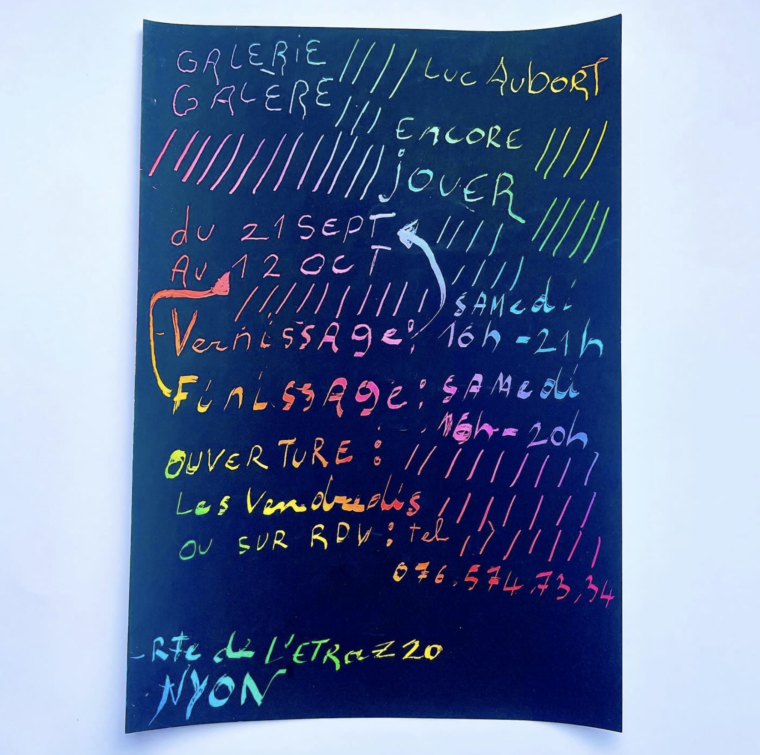 GALERIE //// LUC AUBORT
GALÈRE ///
ENCORE ////
JOUER
du 21 SEPT
AU 12 OCT
SAMEdi
Vernissage: 16h-21h
Finissage: SAMedi
16h-20h
OUVERTURE :
Les Vendredis
OU SUR RDV : tel
076.574.73.34
Rte de L'ETRAZ 20
NYON